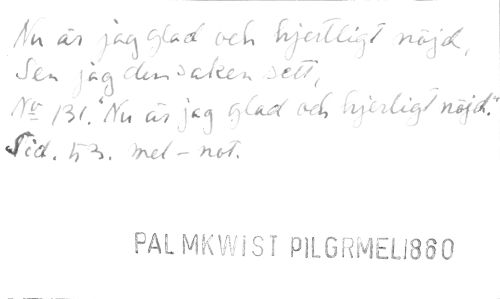 Nu är jag glad och hjertligt nöjd,
Sen jag den saken sett,
No 131. "Nu är jag glad och hjerligt nöjd."
Sid. 53. mel-not.
PALMKWIST PILGRMEL1860